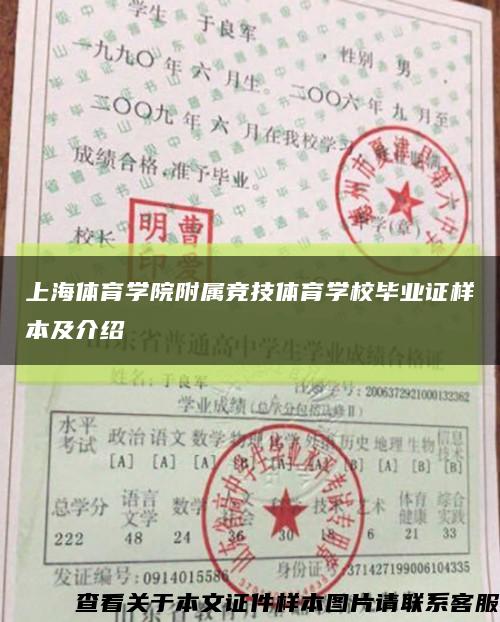 学生 于良军 ，性别 男 ，
一九九〇 年 六 月生。 二〇〇六 年 九 月至
二〇〇九 年 六 月在我校学习
成绩合格，准予毕业。
德州市夏津县第六中学
学(章)
校长
曹爱明印
上海体育学院附属竞技体育学校毕业证样
本及介绍
山东省普通高中学生学业成绩合格证
姓名：于良军
学号：2006372921000132362
学业成绩（总学分包括选修Ⅱ）
水平考试 政治 语文 数学 物理 化学 外语 历史 地理 生物 信息技术
[A] [A] [A] [B] [B] [B] [A] [A] [B] [B]
总学分 语言文学 数学 技术 艺术 体育健康 综合实践
222 48 24 36 30 18 6 21 33
发证编号：0914015586
身份证号：371427199006104335
查看关于本文证件样本图片请联系客服